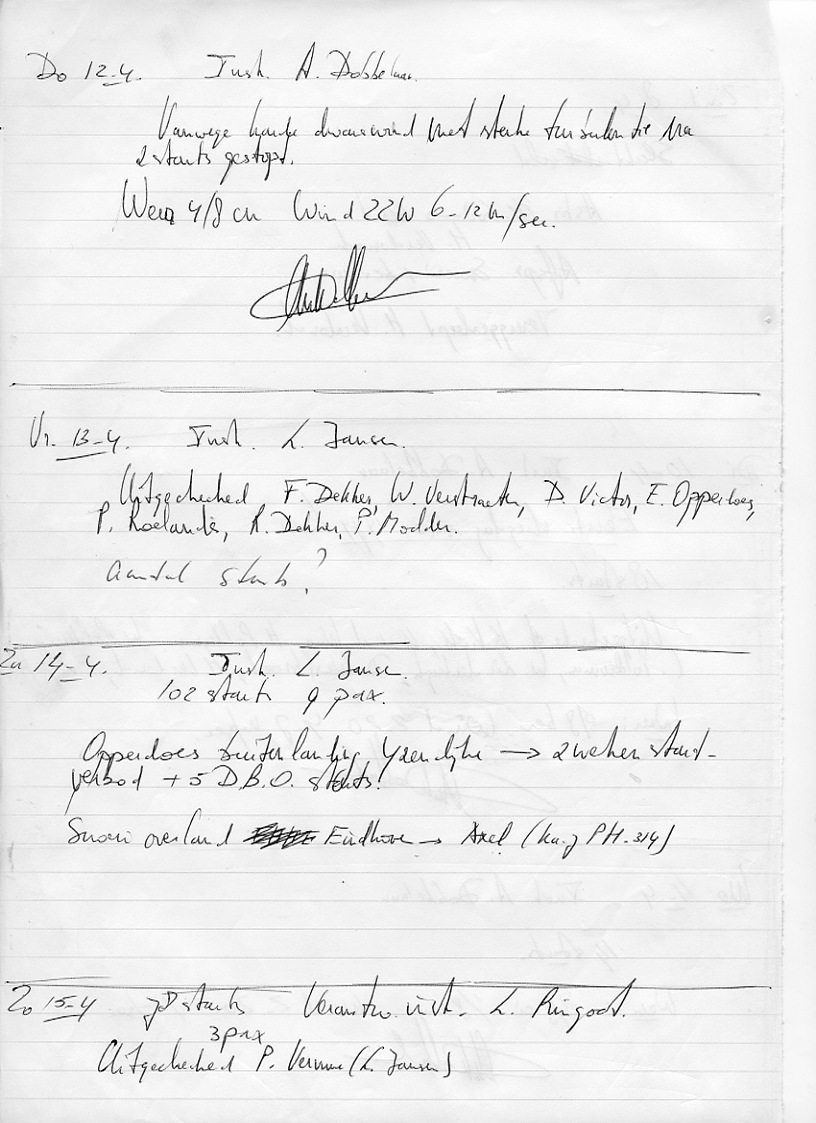 Do 12-4. Instr. A. Dobbelaar.
Vanwege harde dwarswind met sterke turbulentie na
2 starts gestopt.
Weer 4/8 cu Wind 22W 6-12 m/sec.
Vr. 13-4. Instr. L. Jansen.
Uitgechecked F. Dekker, W. Verstraeten, D. Victor, E. Opperdoes,
P. Roelands, R. Dekker, P. Modder.
Aantal starts?
Za 14-4. Instr. L. Jansen.
102 starts 9 pax.
Opperdoes buitenlanding Yzendijke → 2 weken start-
verbod + 5 D.B.O. starts!
overland Eindhoven → Axel (Ka. 7 PH-314)
Zo 15-4 78 starts Verantw. instr. L. Ringoot.
3 pax
Uitgechecked P. (L. Jansen)